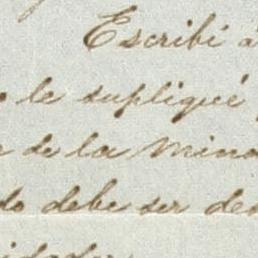 Escribí á
le supliqué
de la Mina
do debe ser de